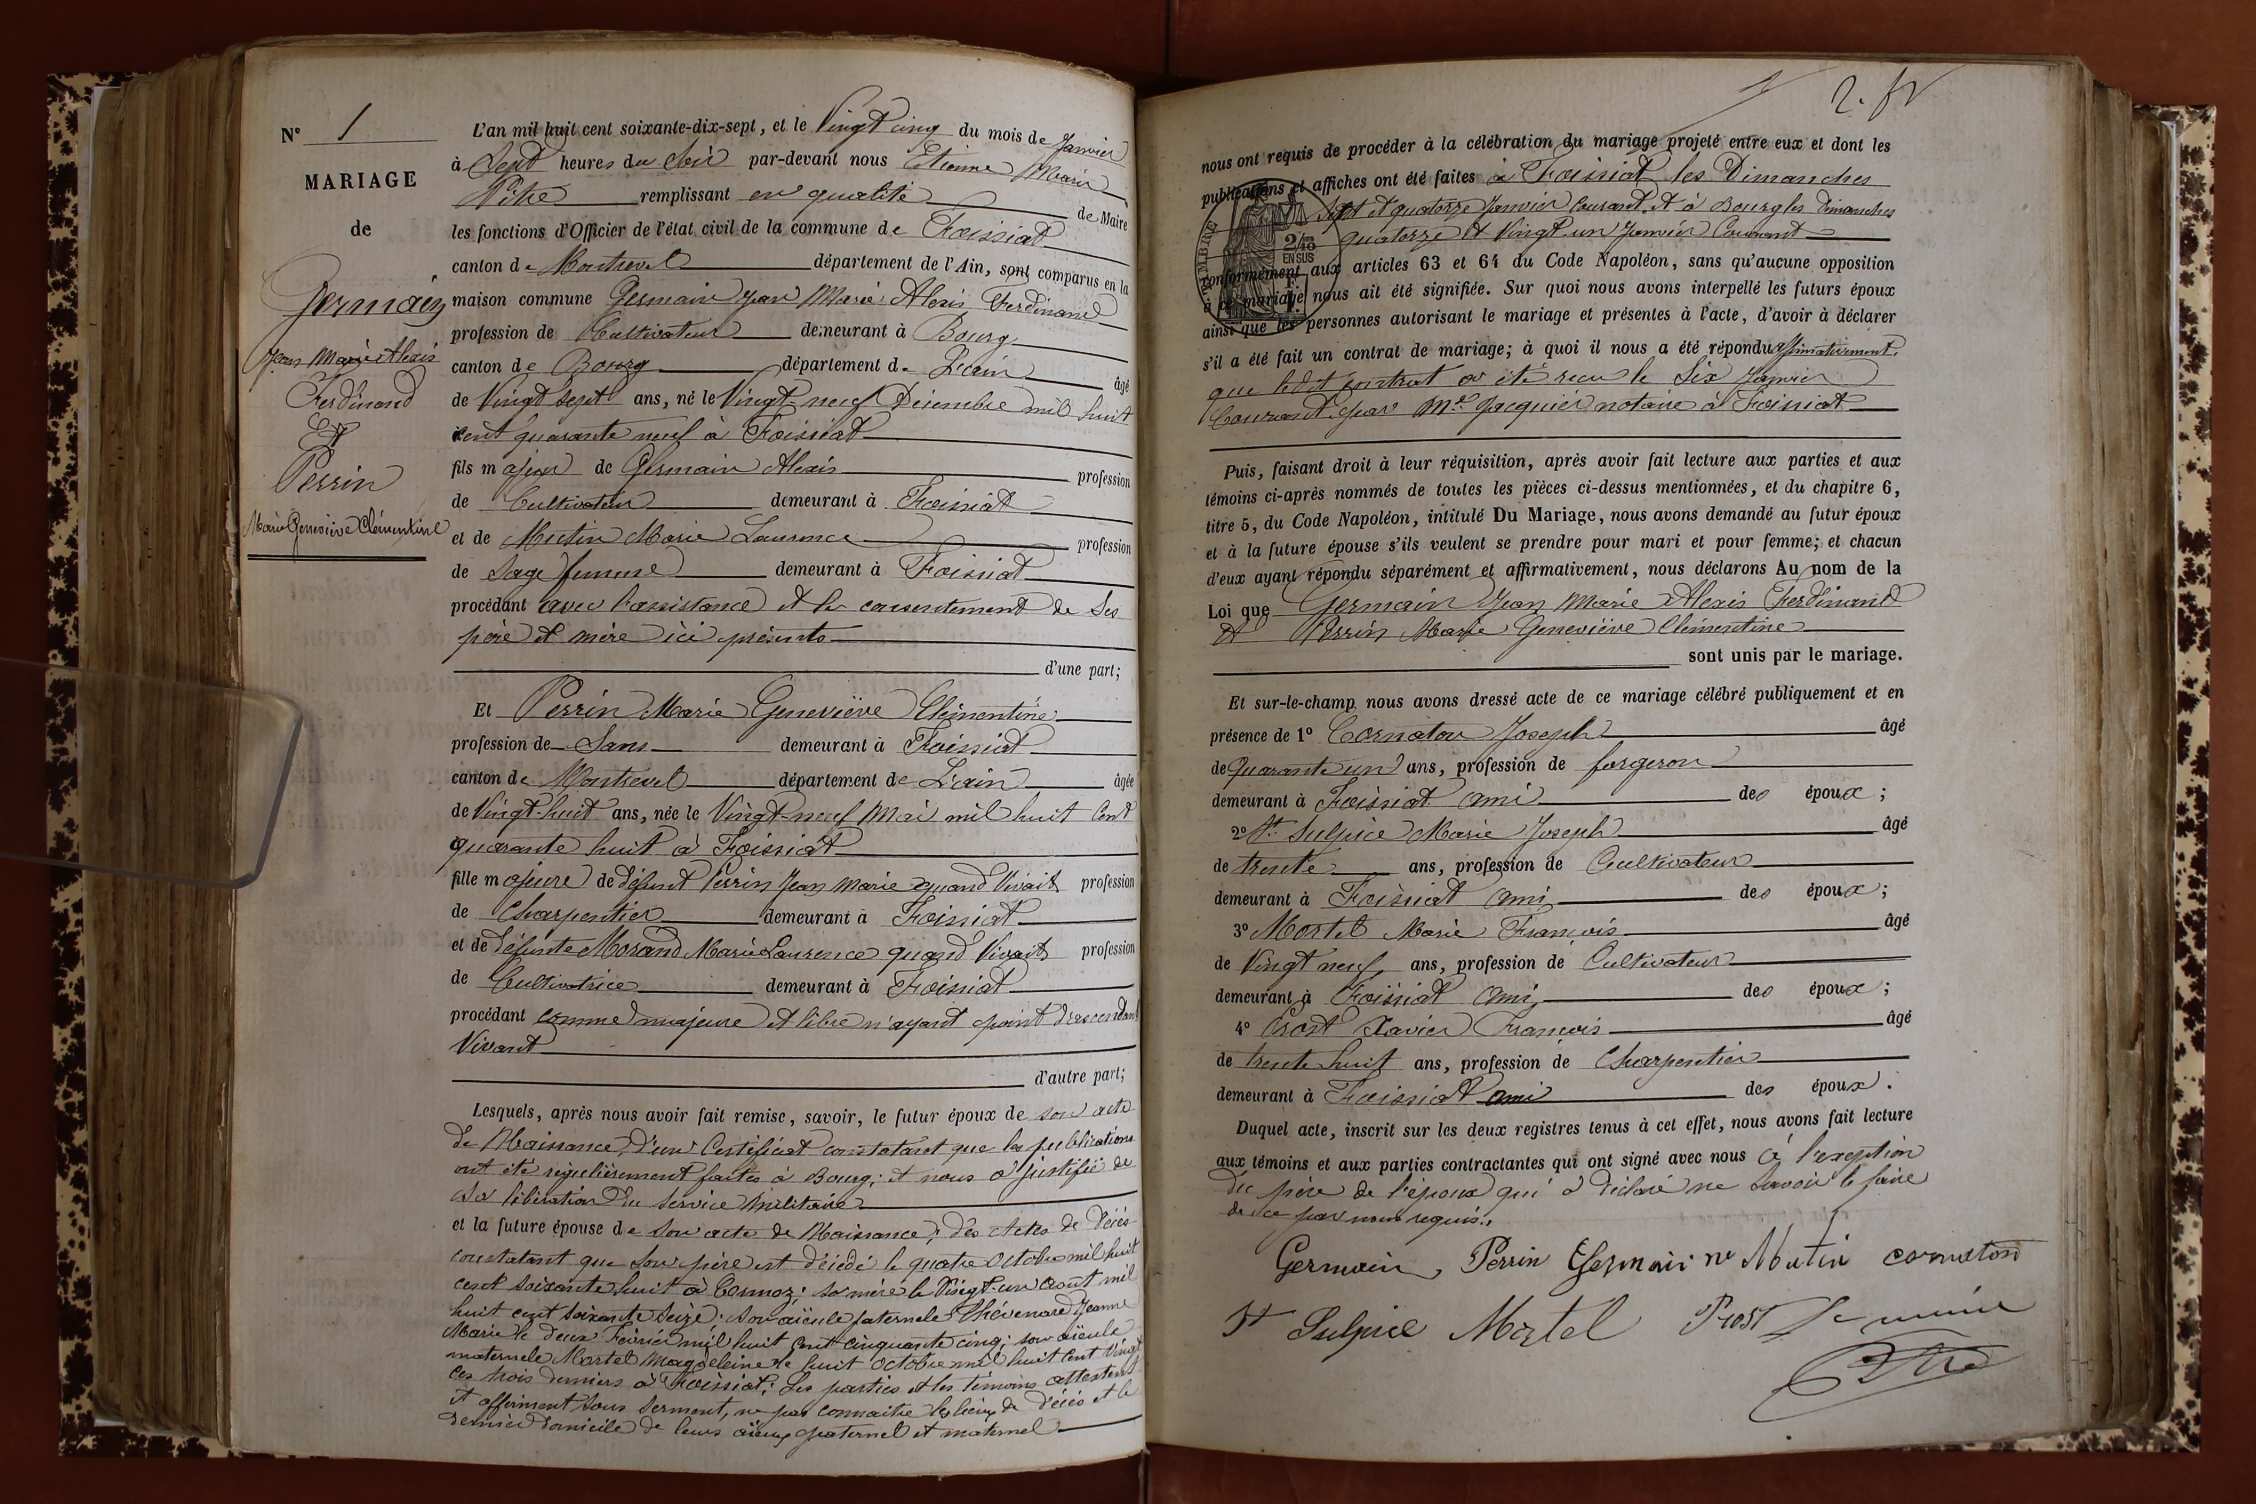 N° 1
MARIAGE
de
Germain
Jean Marie Alexis
Ferdinand
Et
Perrin
Marie Geneviève Clémentine
L'an mil huit cent soixante-dix-sept, et le Vingt cinq du mois de Janvier
à Sept heures du Soir par-devant nous Etienne Marin
Pitre remplissant en qualité de Maire
les fonctions d'Officier de l'état civil de la commune de Foissiat
canton de Montrevel département de l'Ain, sont comparus en la
maison commune Germain Jean Marie Alexis Ferdinand
profession de Cultivateur demeurant à Bourg
canton de Bourg département de L'ain âgé
de Vingt sept ans, né le Vingt neuf Décembre mil huit
cent quarante neuf à Foissiat
fils majeur de Germain Alexis profession
de Cultivateur demeurant à Foissiat
et de Mutin Marie Laurence profession
de Sage femme demeurant à Foissiat
procédant avec l'assistance et le consentement de Ses
père et mère ici présents
d'une part;
Et Perrin Marie Geneviève Clémentine
profession de Sans demeurant à Foissiat
canton de Montrevel département de L'ain âgée
de Vingt-huit ans, née le Vingt-neuf Mai mil huit Cent
quarante huit à Foissiat
fille majeure de défunt Perrin Jean Marie quand Vivait profession
de Charpentier demeurant à Foissiat
et de défunte Morand Marie Laurence quand Vivait profession
de Cultivatrice demeurant à Foissiat
procédant comme majeure et libre n'ayant point d'ascendant
Vivant
d'autre part;
Lesquels, après nous avoir fait remise, savoir, le futur époux de son acte
de Naissance, d'un Certificat constatant que les publications
ont été régulièrement faites à Bourg; et nous a justifié de
sa libération du service militaire
et la future épouse de son acte de Naissance; des Actes de Décès
constatant que son père est décédé le quatre Octobre mil huit
cent soixante huit à Cormoz; sa mère le Vingt-un août mil
huit cent soixante seize; son aïeule paternele Thévenard Jeanne
Marie le deux Février mil huit Cent cinquante cinq; son aïeule
maternele Martel Magdeleine le huit Octobre mil huit Cent Vingt
Ces trois derniers à Foissiat; Les parties et les témoins attestent
et affirment sous serment, ne pas connaitre les lieux de Décès et le
dernier domicile de leurs aïeux paternel et maternel
2.
nous ont requis de procéder à la célébration du mariage projeté entre eux et dont les
publications et affiches ont été faites à Foissiat les Dimanches
Sept et quatorze Janvier Courant, et à Bourg les Dimanches
quatorze et Vingt un Janvier Courant
TIMBRE
2/10 EN SUS
conformément aux articles 63 et 64 du Code Napoléon, sans qu'aucune opposition
à ce mariage nous ait été signifiée. Sur quoi nous avons interpellé les futurs époux
ainsi que les personnes autorisant le mariage et présentes à l'acte, d'avoir à déclarer
s'il a été fait un contrat de mariage; à quoi il nous a été répondu affirmativement,
que ledit contrat a été reçu le Six Janvier
Courant, par Me Jacquier notaire à Foissiat
Puis, faisant droit à leur réquisition, après avoir fait lecture aux parties et aux
témoins ci-après nommés de toutes les pièces ci-dessus mentionnées, et du chapitre 6,
titre 5, du Code Napoléon, intitulé Du Mariage, nous avons demandé au futur époux
et à la future épouse s'ils veulent se prendre pour mari et pour femme; et chacun
d'eux ayant répondu séparément et affirmativement, nous déclarons Au nom de la
Loi que Germain Jean Marie Alexis Ferdinand
et Perrin Marie Geneviève Clémentine
sont unis par le mariage.
Et sur-le-champ nous avons dressé acte de ce mariage célébré publiquement et en
présence de 1° Cornaton Joseph âgé
de quarante un ans, profession de forgeron
demeurant à Foissiat ami des époux;
2° St Sulpice Marie Joseph âgé
de trente ans, profession de Cultivateur
demeurant à Foissiat ami des époux;
3° Martel Marie François âgé
de Vingt neuf ans, profession de Cultivateur
demeurant à Foissiat ami des époux;
4° Prost Xavier François âgé
de trente huit ans, profession de Charpentier
demeurant à Foissiat ami des époux.
Duquel acte, inscrit sur les deux registres tenus à cet effet, nous avons fait lecture
aux témoins et aux parties contractantes qui ont signé avec nous à l'exception
du père de l'époux qui a déclaré ne savoir le faire
de ce par nous requis.
Germain Perrin Germain né Mutin cornaton
St Sulpice Martel Prost Le maire
Pitre